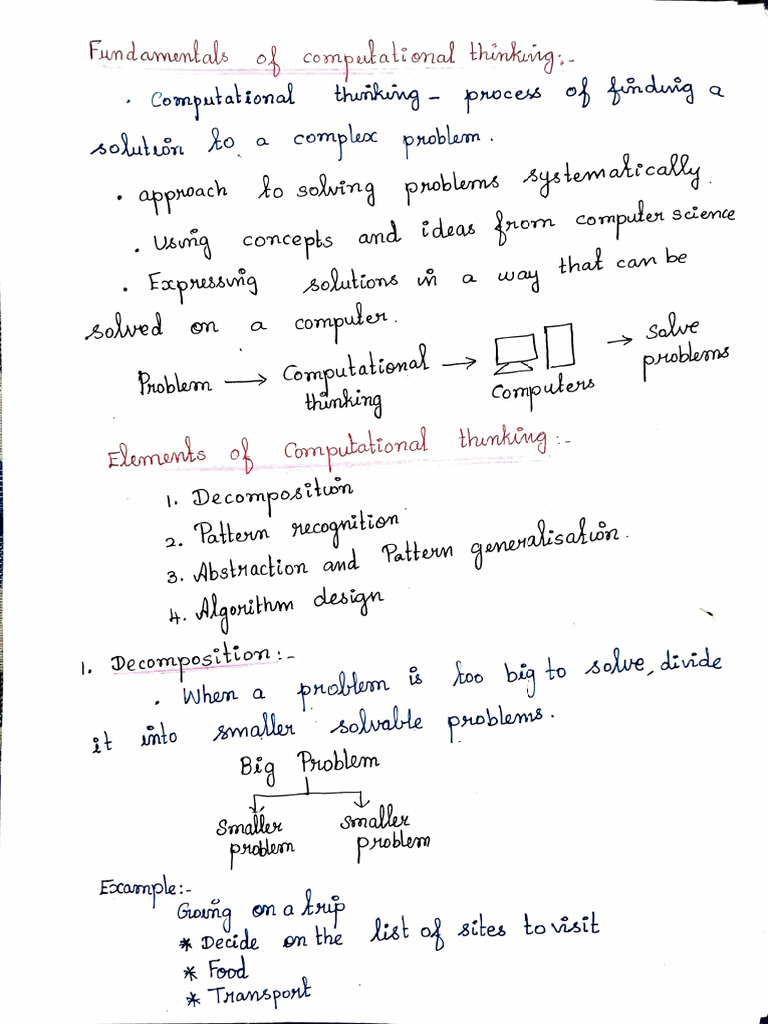 Fundamentals of computational thinking:-
. Computational thinking - process of finding a
solution to a complex problem.
. approach to solving problems systematically.
. Using concepts and ideas from computer science
. Expressing solutions in a way that can be
solved on a computer.
Problem → Computational thinking → Computers → Solve problems
Elements of Computational thinking:-
1. Decomposition
2. Pattern recognition
3. Abstraction and Pattern generalisation.
4. Algorithm design
1. Decomposition:-
. When a problem is too big to solve, divide
it into smaller solvable problems.
Big Problem
Smaller problem
Smaller problem
Example:-
Going on a trip
* Decide on the list of sites to visit
* Food
* Transport